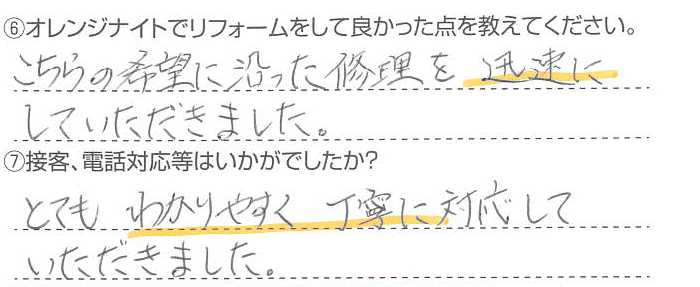 ⑥オレンジナイトでリフォームをして良かった点を教えてください。
こちらの希望に沿った修理を迅速に
していただきました。
⑦接客、電話対応等はいかがでしたか?
とてもわかりやすく丁寧に対応して
いただきました。